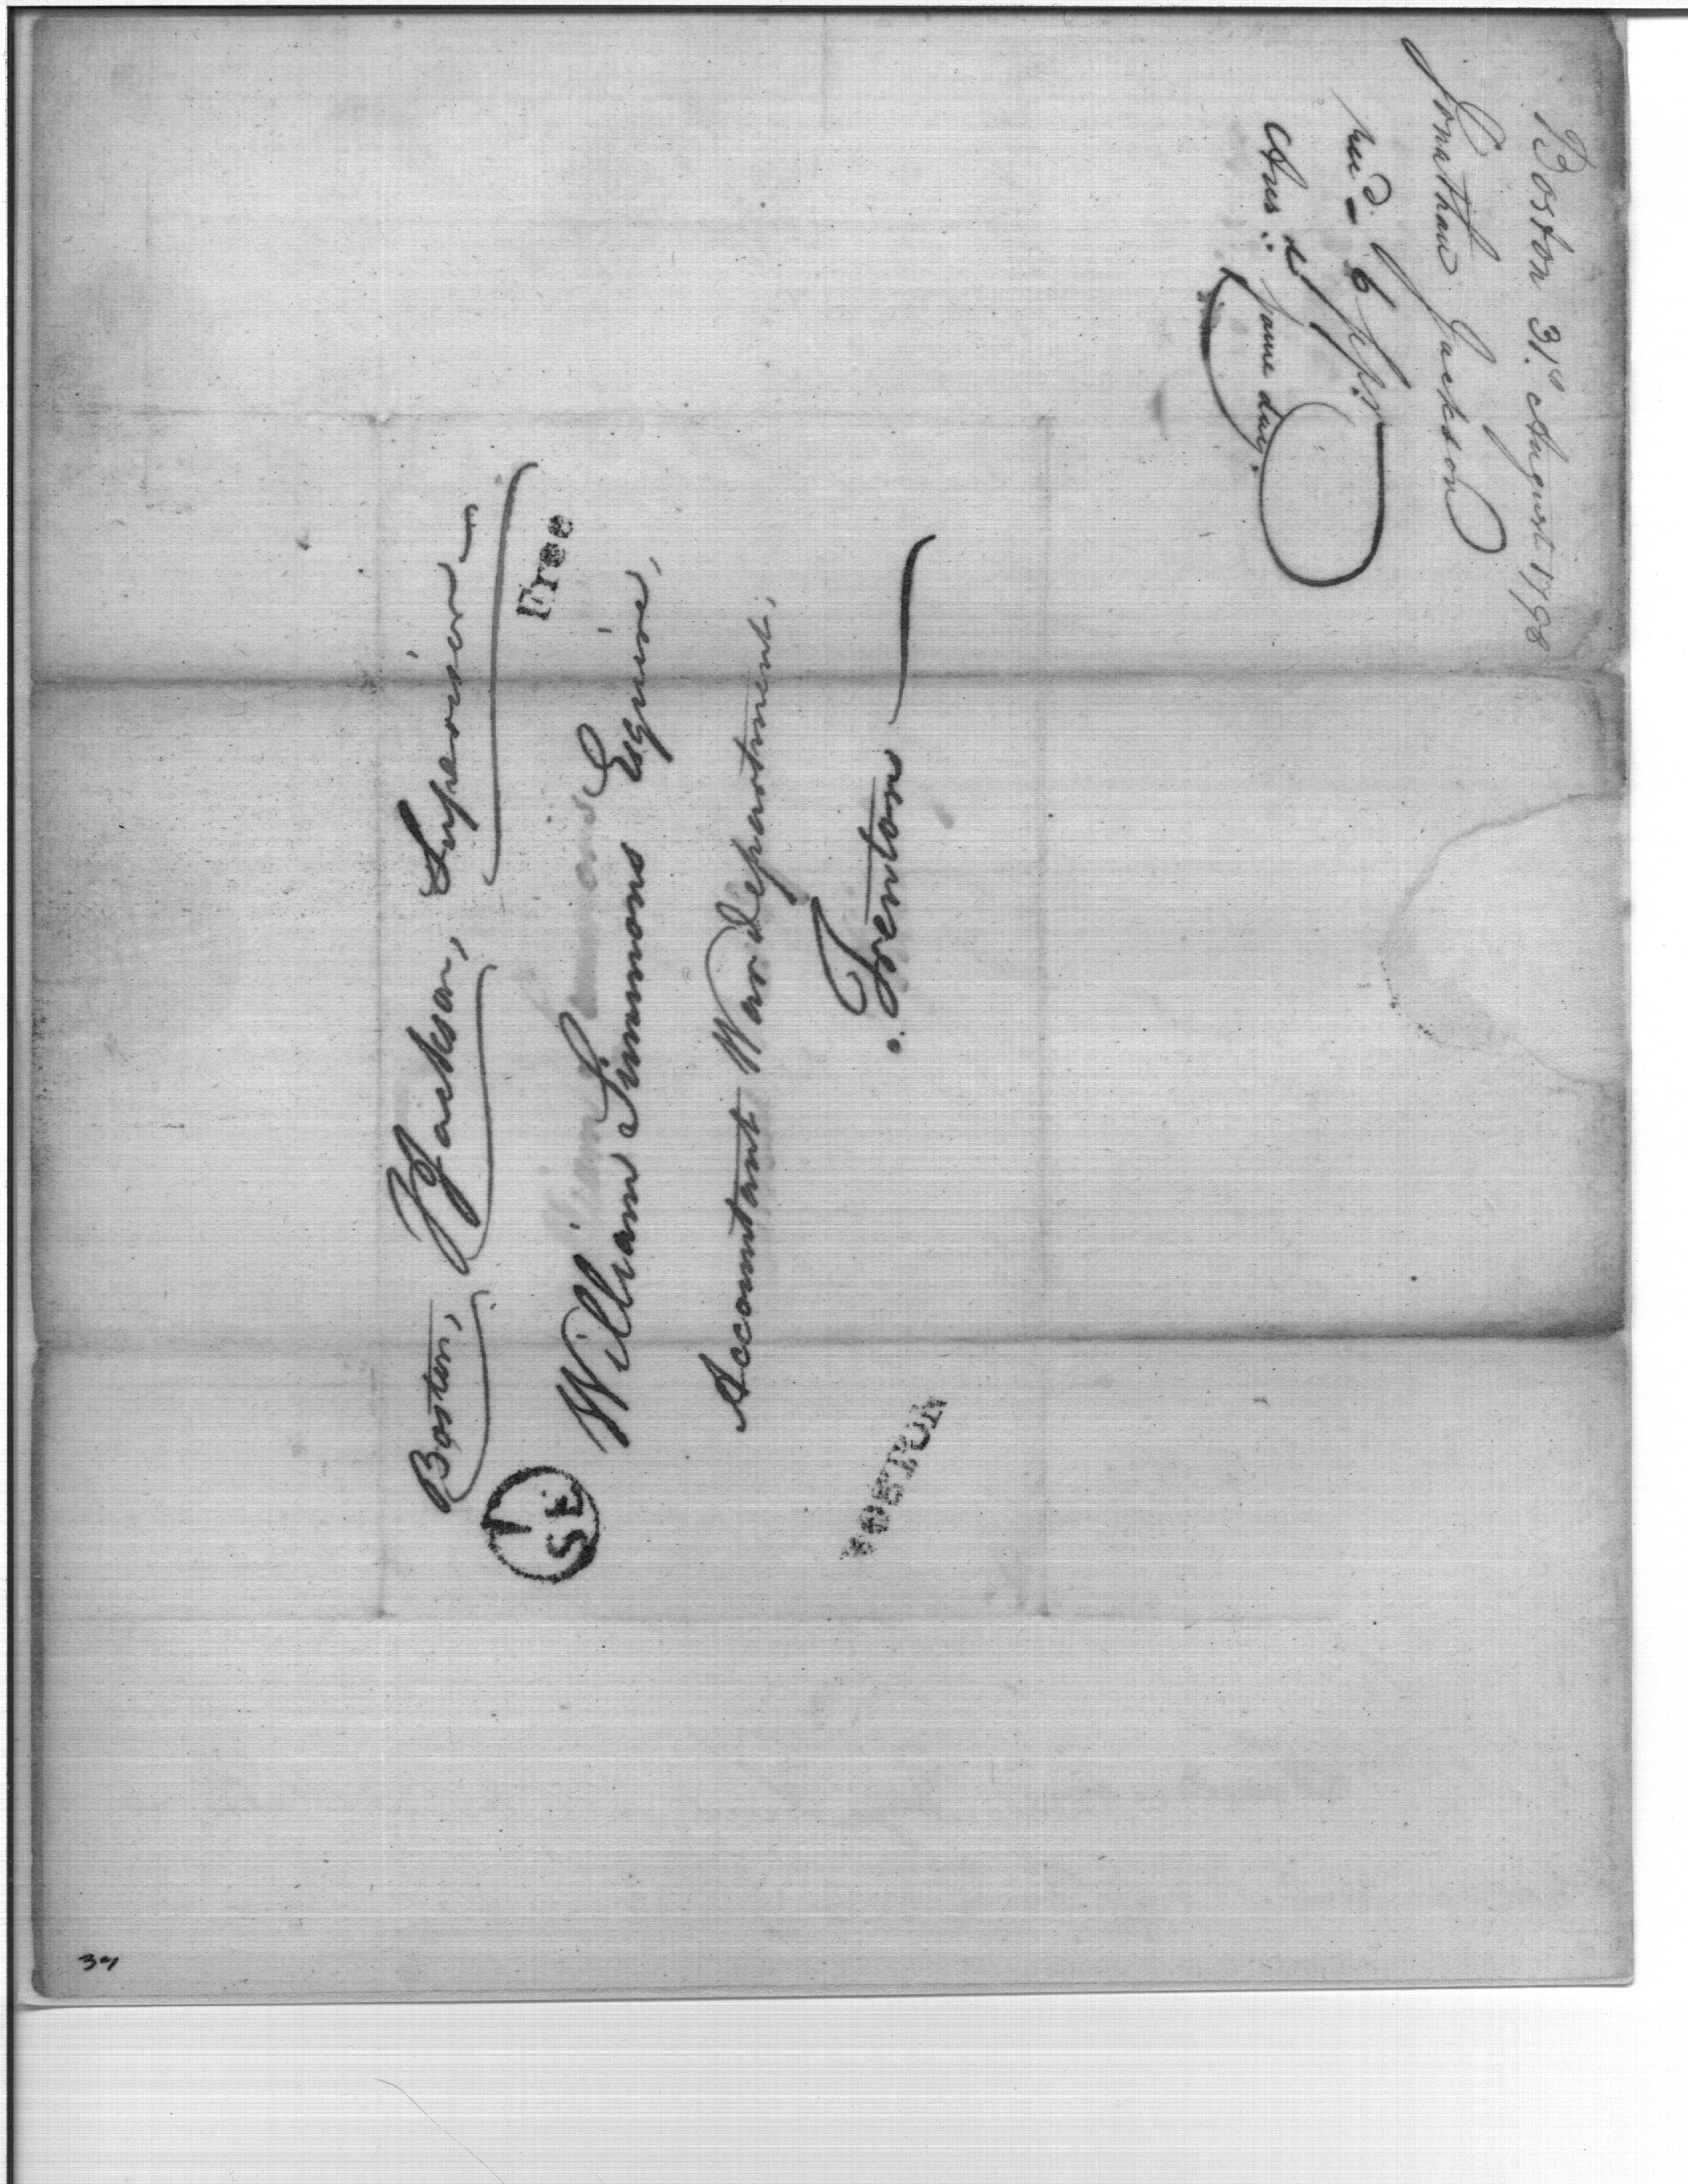 Boston, J Jackson, Supervisor
Free
1
SE
William Simmons Esquire,
Accountant War department,
Trenton
BOSTON
Boston 31st August 1798
Jonathan Jackson
recd. 6 Sepr.
Ans: d. same day.
37